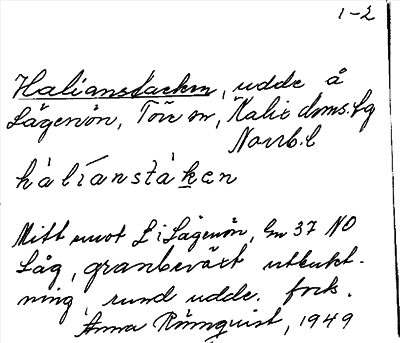 1-2
Halianstacken, udde å
Lågenön, Töre sn, Kalix doms. lg
Norrb. l
hàlíanstàken
Mitt emot L i Lågenön, En 37 NO
Låg, granbeväxt utbukt-
ning, rund udde. forts.
Anna Rönnquist, 1949